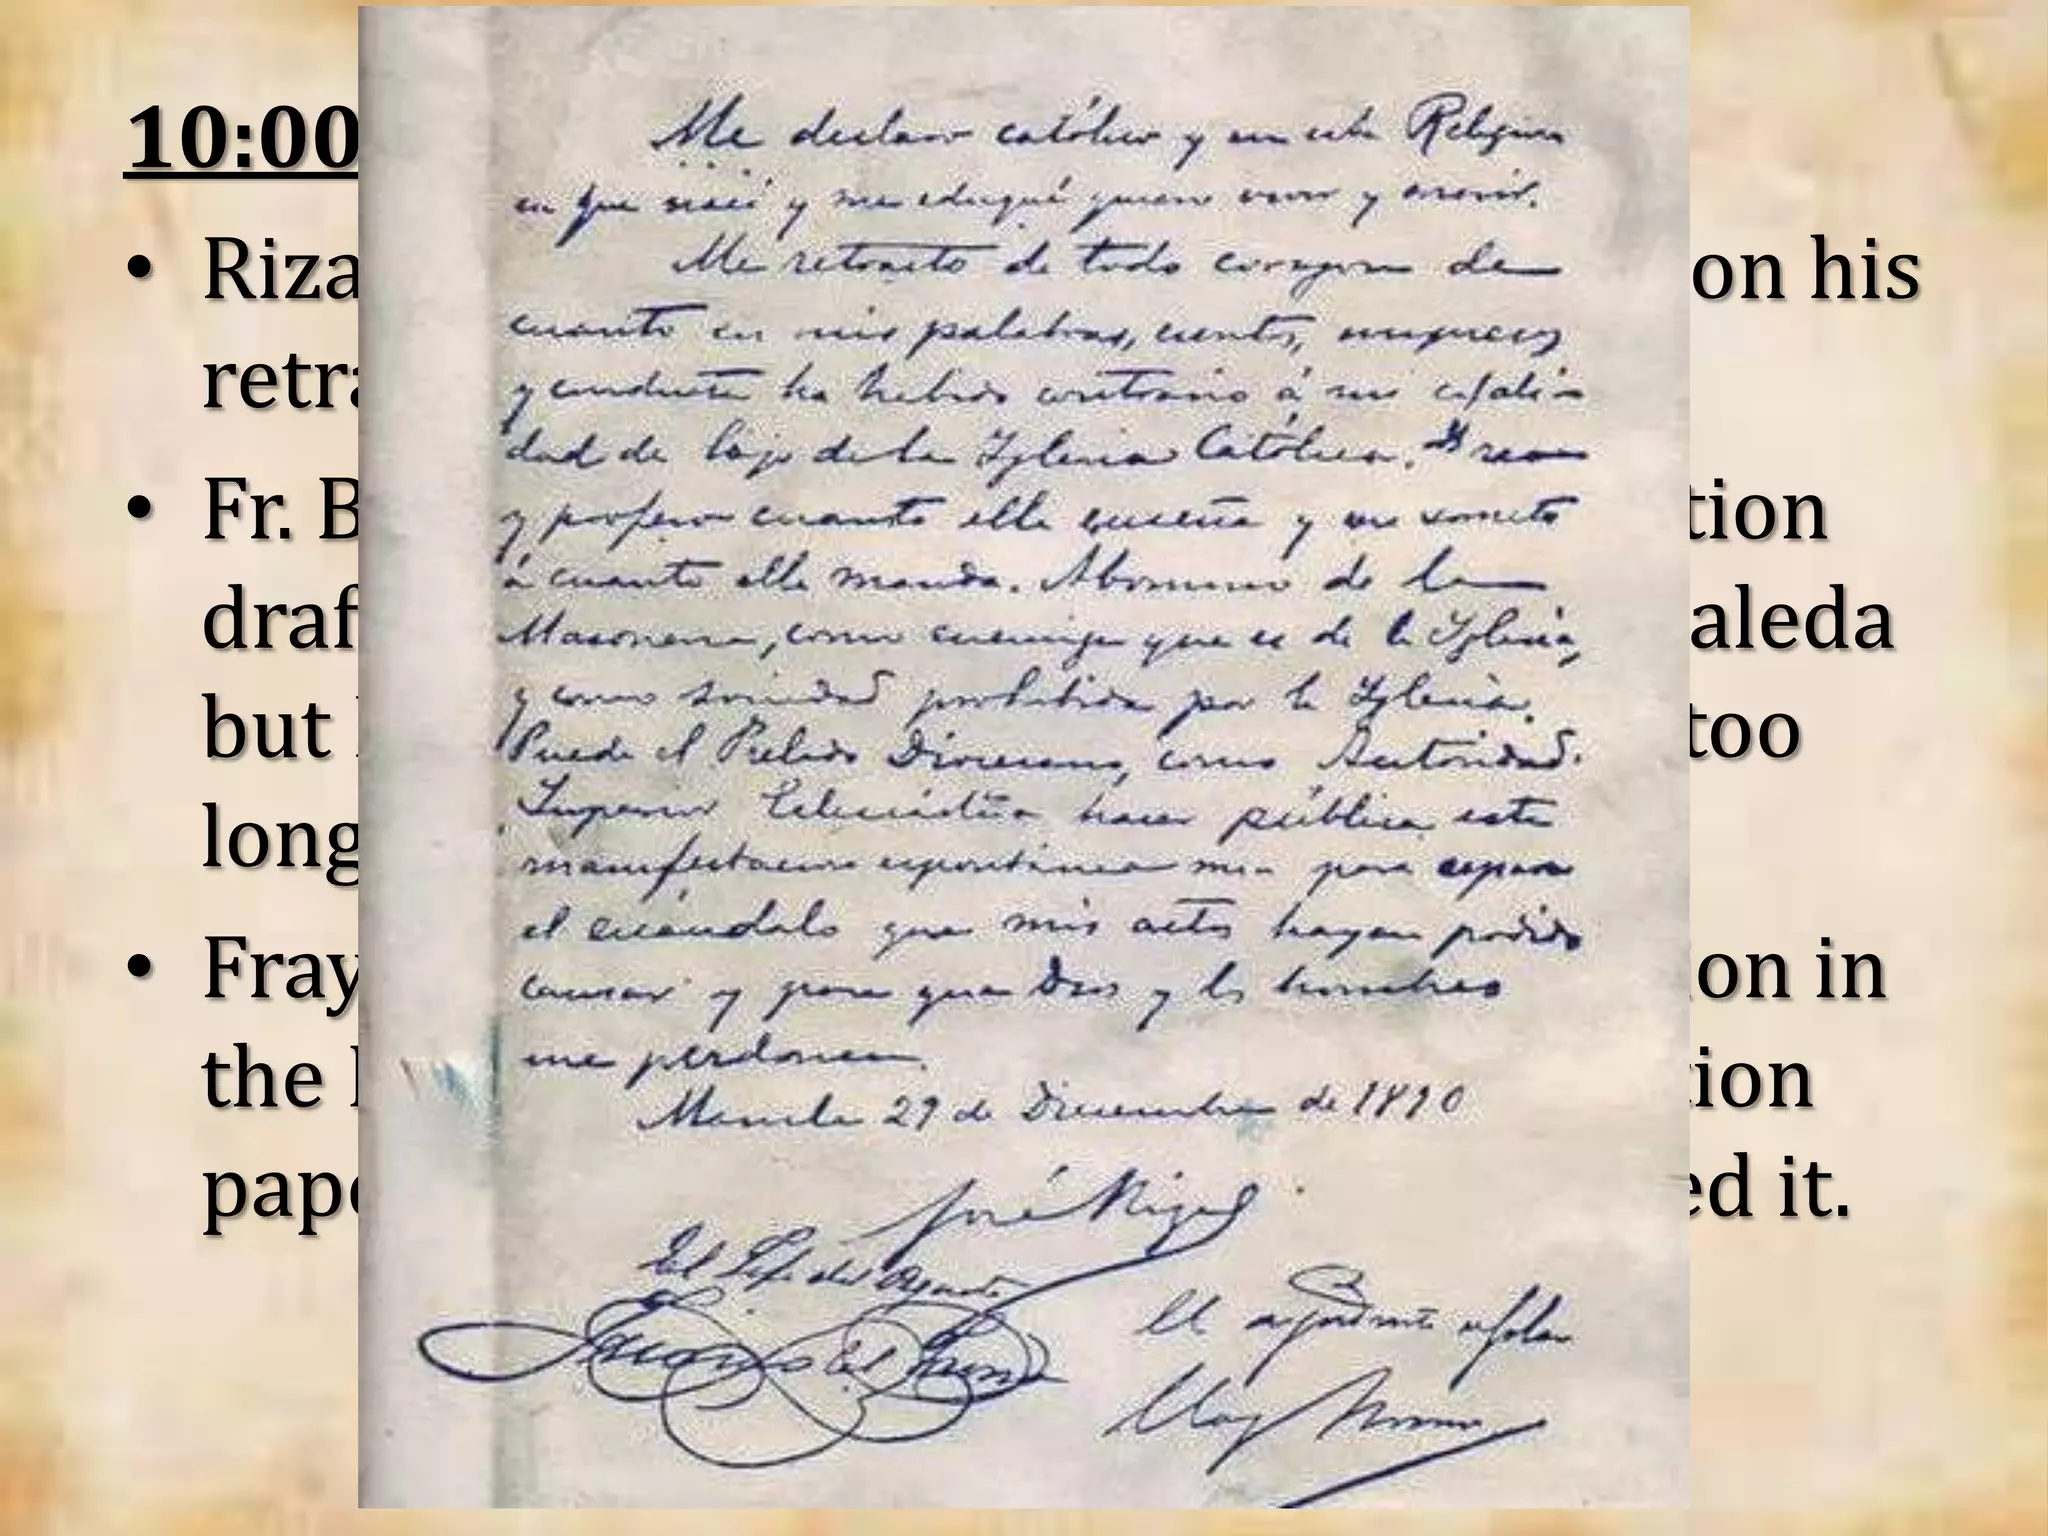 10:00
• Riza on his
retra
• Fr. B tion
draf aleda
but too
long
• Fray on in
the tion
pape ed it.
Me declaro católico y en esta Religion
en que nací y me eduqué quiero vivir y morir.
Me retracto de todo corazon de
cuanto en mis palabras, escritos, impresos
y conducta ha habido contrario á mi cualid
dad de hijo de la Iglesia Católica. Creo
y profeso cuanto ella enseña y me someto
á cuanto ella manda. Abomino de la
Masoneria, como enemiga que es de la Iglesia,
y como sociedad prohibida por la Iglesia.
Puede el Prelado Diocesano, como Autoridad
Superior Eclesiástica hacer pública esta
manifestacion espontánea mia para reparar
el escándalo que mis actos hayan podido
causar y para que Dios y los hombres
me perdonen.
Manila 29 de Diciembre de 1890
José Rizal
El Jefe del Piquete
Juan del Fresno
El ayudante de Plaza
Eloy Moure